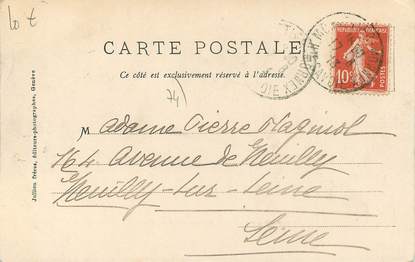 10 €
CARTE POSTALE
Ce côté est exclusivement réservé à l'adresse.
74)
RÉPUBLIQUE FRANÇAISE
10
POSTES
Madame Pierre
164 Avenue de Neuilly
Neuilly-sur-Seine
Seine
Jullien frères, éditeurs-photographes, Genève